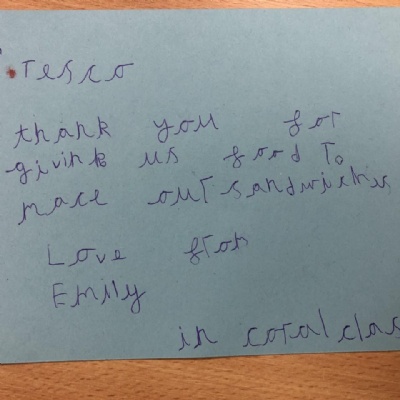 Tesco
thank you for
giving us food To
mace our sandwiches
Love from
Emily
in coral clas